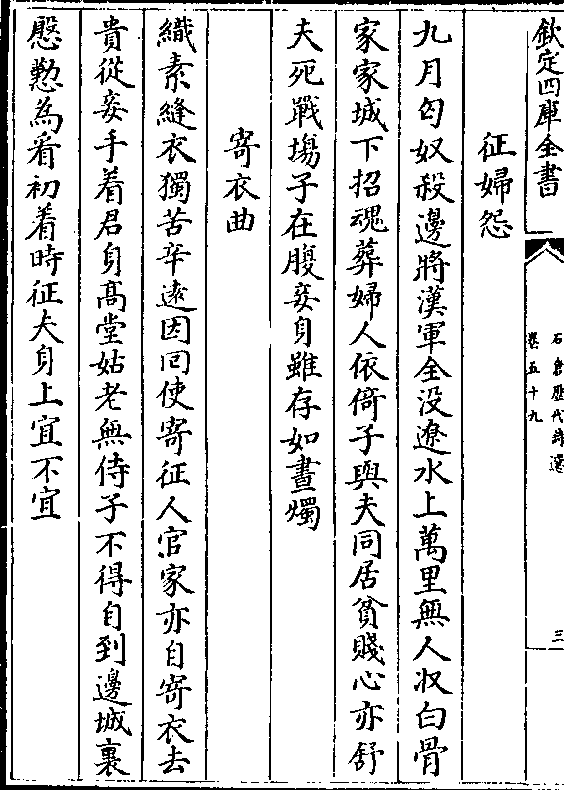 欽定四庫全書
石倉歷代詩選
卷五十九
三
征婦怨
九月匈奴殺邊將漢軍全没遼水上萬里無人收白骨
家家城下招魂葬婦人依倚子與夫同居貧賤心亦舒
夫死戰場子在腹妾身雖存如晝燭
寄衣曲
織素縫衣獨苦辛遠因回使寄征人官家亦自寄衣去
貴從妾手着君身高堂姑老無侍子不得自到邊城裏
慇懃為看初着時征夫身上宜不宜